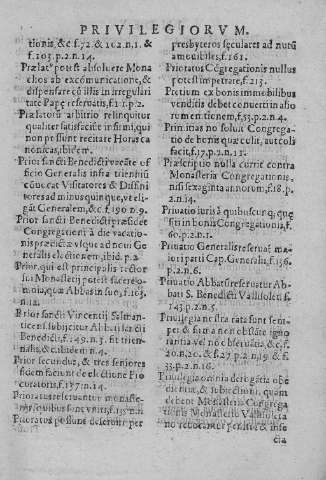 PRIVILEGIORVM.
tionis, & c f.72. & 102.n.1. &
f.103.p.2.n.14.
Prælatº potest absoluere Mona
chos ab excōmunicatione, &
dispensare cũ illis in irregulari
tate Papę reseruatis, f.1.p.2.
Prælatorũ arbitrio relinquitur
qualiter satisfaciāt infirmi, qui
non possunt recitate Horas ca
nónicas, ibidem.
Prior sancti Benedicti
ficio Generalis infra trienniũ
Visitatores & Diffini
tores ad minus quinque, vel eli
gāt Generalem, & c. f.190.n.9.
Prior sancti Benedicti præsidet
Congregationi à die vacatio-
nis prædictæ vsque ad nouũ Ge
neralis electionem, ibid. p.2.
Prior, qui est principalis rector
sui Monasterij potest sacræ cere
monia, quæ Abbas in suo, f.103.
n.12.
Prior sancti Vincentij Salman-
ticens. subijcitur Abbati sancti
Benedicti, f.149.n.3. fit trien-
nalis, & c. ibidem n.4.
Prior secundus, & tres seniores
fidem faciunt de electione Pro
curatoris, f.137.n.14.
Prioratus reseruantur monaste-
rijs, quibus sunt vniti, f.135.n.11
Prioratus possunt deseruiri per
presbyteros sęculares ad nutũ
amouibiles, f.161.
Prioratus Cōgregationis nullus
potest impetrare, f.213.
Pretium ex bonis immobilibus
venditis debet conuerti in alio
rum emtionem, f.53.p.2.n.4.
Primitias no soluit Congrega-
tio de bonis quæ colit, aut coli
facit, f.17.p.2.n.13.
Præscriptio nulla currit contra
Monasteria Congregationis,
nisi sexaginta annorum, f.18.p.
2.n.14.
Priuatio iuris à quibuscunq; quę
sit in bonis Congregationis, f.
60.p.2.n.1.
Priuatio Generalis reseruat ma
iori parti Cap. Generalis, f.136.
p.2.n.6.
Priuatio Abbatũ reseruatur Ab-
bati S. Benedicti Vallisolet. f.
143.p.2.n.5.
Priuilegia nostra rata sunt sem-
per & firma non obstāte igno
rantia vel no obseruātia, & c. f.
20.n.20. & f.27.p.2.n.19. & f.
33.p.2.n.16.
Priuilegia omnia derogātia obe
dientiæ, & subiectioni, quam
debent Monasteria Congrega
tionis Monasterio Vallisoleta
no reuocantur penitus & info
cia